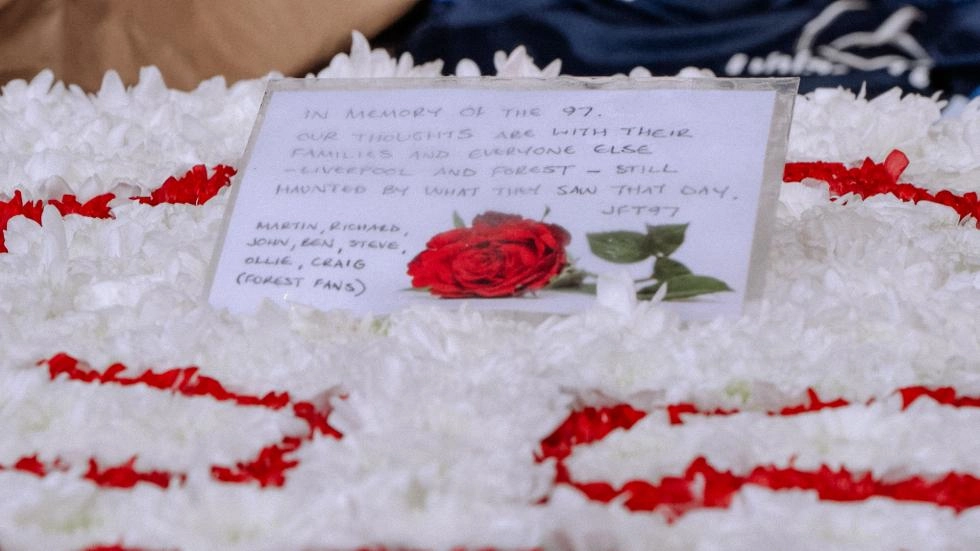 IN MEMORY OF THE 97.
OUR THOUGHTS ARE WITH THEIR
FAMILIES AND EVERYONE ELSE
-LIVERPOOL AND FOREST - STILL
HAUNTED BY WHAT THEY SAW THAT DAY.
JFT97
MARTIN, RICHARD,
JOHN, BEN, STEVE,
OLLIE, CRAIG
(FOREST FANS)